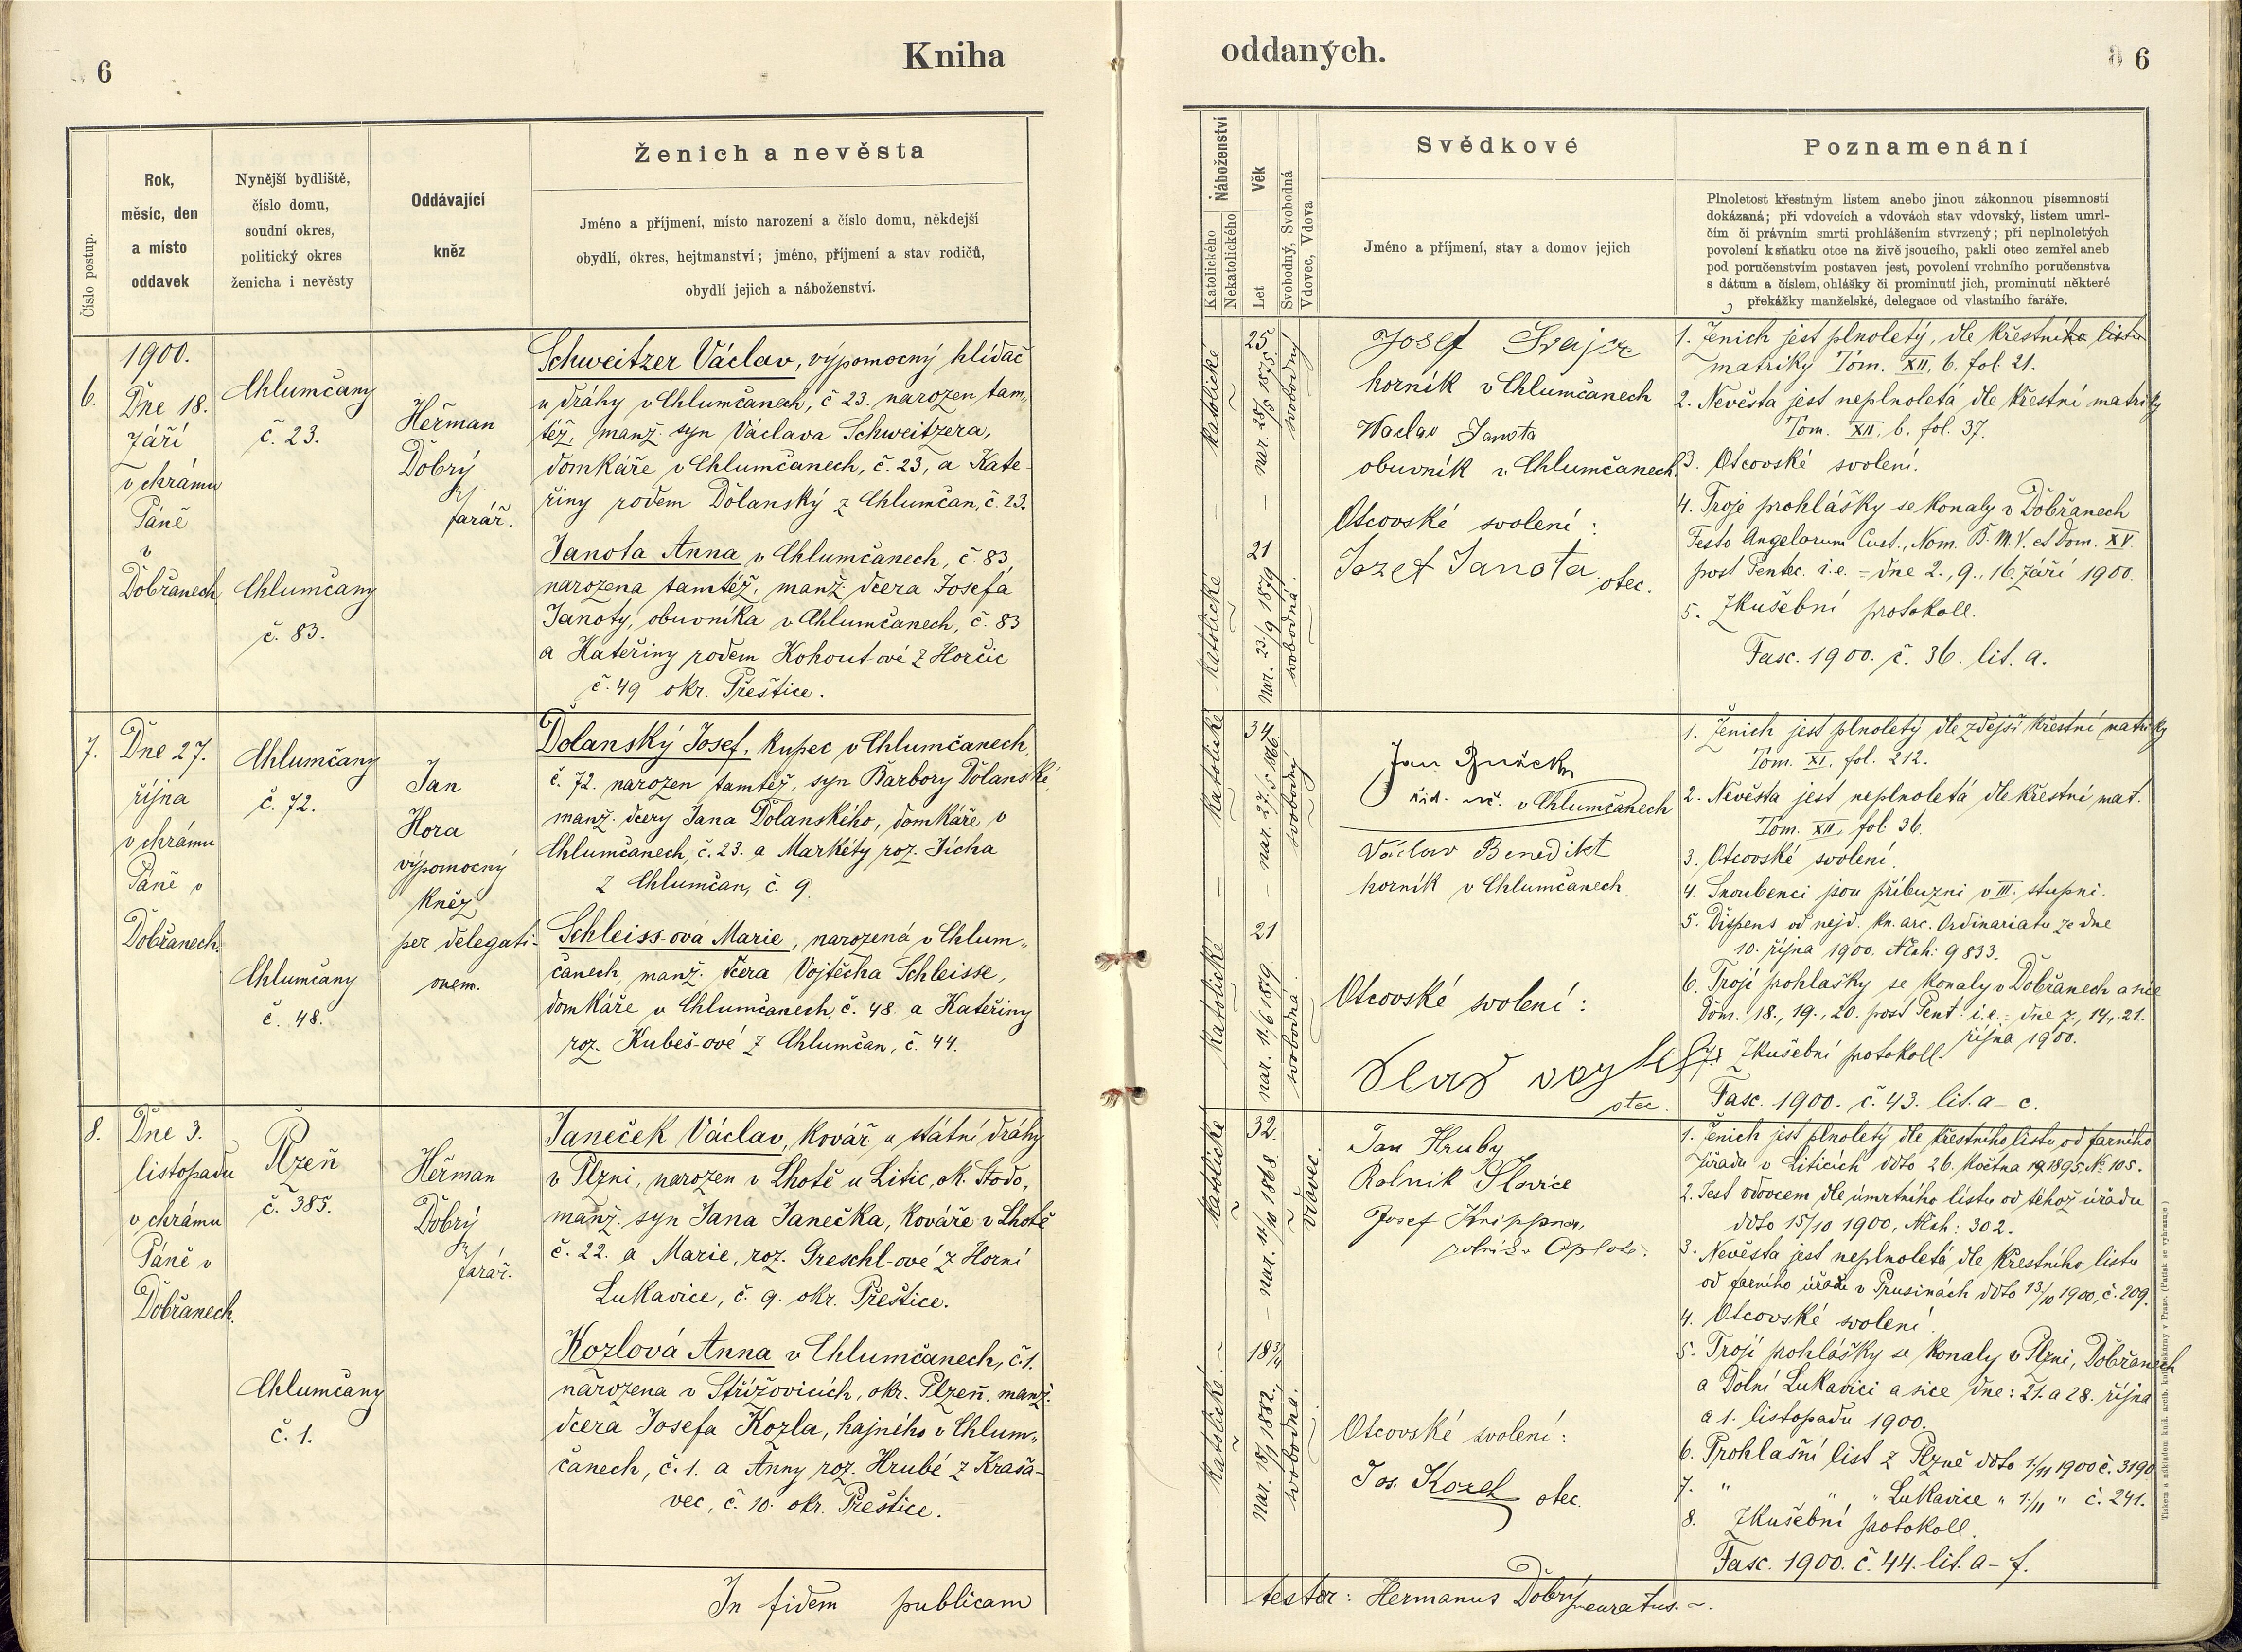 6
Kniha
Číslo postup.
Rok,
měsíc, den
a místo
oddavek
Nynější bydliště,
číslo domu,
soudní okres,
politický okres
ženicha i nevěsty
Oddávající
kněz
Ženich a nevěsta
Jméno a příjmení, místo narození a číslo domu, někdejší
obydlí, okres, hejtmanství; jméno, příjmení a stav rodičů,
obydlí jejich a náboženství.
6.
1900.
Dne 18.
září
v chrámu
Páně
v
Dobřanech
Chlumčany
č. 23.
Chlumčany
č. 83.
Heřman
Dobrý
farář.
Schweitzer Václav, výpomocný hlídač
u dráhy v Chlumčanech, č. 23. narozen tam„
též, manž. syn Václava Schweitzera,
domkáře v Chlumčanech, č. 23, a Kate-
řiny rodem Dolanský z Chlumčan, č. 23.
Janota Anna v Chlumčanech, č. 83,
narozena tamtéž, manž. dcera Josefa
Janoty, obuvníka v Chlumčanech, č. 83
a Kateřiny rodem Kohout-ové z Horčic
č. 49 okr. Přeštice.
7.
Dne 27.
října
v chrámu
Páně v
Dobřanech.
Chlumčany
č. 72.
Chlumčany
č. 48.
Jan
Hora
výpomocný
kněz
per delegati-
onem.
Dolanský Josef, kupec v Chlumčanech,
č. 72. narozen tamtéž, syn Barbory Dolanské,
manž. dcery Jana Dolanského, domkáře v
Chlumčanech, č. 23. a Markéty roz. Jícha
z Chlumčan, č. 9.
Schleiss-ová Marie, narozená v Chlum„
čanech, manž. dcera Vojtěcha Schleisse,
domkáře v Chlumčanech, č. 48. a Kateřiny
roz. Kubeš-ové z Chlumčan, č. 44.
8.
Dne 3.
listopadu
v chrámu
Páně v
Dobřanech.
Plzeň
č. 385.
Chlumčany
č. 1.
Heřman
Dobrý
farář.
Janeček Václav, kovář u státní dráhy
v Plzni, narozen v Lhotě u Litic, ok. Stodo,
manž. syn Jana Janečka, kováře v Lhotě
č. 22. a Marie, roz. Greschl-ové z Horní
Lukavice, č. 9. okr. Přeštice.
Kozlová Anna v Chlumčanech, č. 1.
narozena v Střížovicích, okr. Plzeň. manž.
dcera Josefa Kozla, hajného v Chlum„
čanech, č. 1. a Anny roz. Hrubé z Krasa-
vec, č. 10. okr. Přeštice.
In fidem publicam
oddaných.
6
Náboženství
Katolického
Nekatolického
Věk
Let
Svobodný, Svobodná
Vdovec, Vdova
Svědkové
Jméno a příjmení, stav a domov jejich
Poznamenání
Plnoletost křestným listem anebo jinou zákonnou písemností
dokázaná; při vdovcích a vdovách stav vdovský, listem umrl-
čím či právním smrti prohlášením stvrzený; při neplnoletých
povolení k sňatku otce na živě jsoucího, pakli otec zemřel aneb
pod poručenstvím postaven jest, povolení vrchního poručenstva
s dátum a číslem, ohlášky či prominutí jich, prominutí některé
překážky manželské, delegace od vlastního faráře.
katolické
25
nar. 28/5 1875.
svobodný
katolické
21
nar. 23/9 1879
svobodná.
Josef Svajcr
horník v Chlumčanech
Waclav Janota
obuvník v Chlumčanech.
Otcovské svolení:
Jozef Janota
otec.
1. Ženich jest plnoletý, dle křestního listu
matriky Tom. XII, b. fol. 21.
2. Nevěsta jest neplnoletá dle křestní matriky
Tom. XII, b. fol. 37.
3. Otcovské svolení.
4. Troje prohlášky se konaly v Dobřanech
Festo Angelorum Cust., Nom. B. M. V. et Dom. XV.
post Pentec. i. e. = dne 2., 9., 16. září 1900.
5. Zkušební protokoll.
Fasc. 1900. č. 36. lit. a.
katolické
34
nar. 27/5 1866.
svobodný
katolické
21
nar. 11/6 1879.
svobodná
Jan
řid. uč. v Chlumčanech
Václav Benedikt
horník v Chlumčanech.
Otcovské svolení:
otec.
1. Ženich jest plnoletý dle zdejší křestní matriky
Tom. XI, fol. 212.
2. Nevěsta jest neplnoletá dle křestní mat.
Tom. XII, fol 36.
3. Otcovské svolení.
4. Snoubenci jsou příbuzni v III. stupni.
5. Dispens od nejd. kn. arc. Ordinariatu ze dne
10. října 1900. Nčoh: 9833.
6. Trojí prohlašky se konaly v Dobřanech a sice
Dom. 18., 19., 20. post Pent. i. e. = dne 7., 14., 21.
října 1900.
7. Zkušební protokoll
Fasc. 1900. č. 43. lit. a – c.
katolické
32.
nar. 11/10 1868.
vdovec.
katolické.
18 3/4
nar. 18/1 1882.
svobodná.
Jan Hruby
Rolnik Slovice
Josef Knippner,
Otcovské svolení:
Jos. Kozel otec.
1. Ženich jest plnoletý dle křestního listu od farního
úřadu v Liticích ddto 26. května 1895. No 105.
2. Jest vdovcem, dle úmrtního listu od téhož úřadu
ddto 15/10 1900, Nčoh: 302.
3. Nevěsta jest neplnoletá dle křestního listu
od farního úřadu v Prusinách ddto 13/10 1900, č. 209.
4. Otcovské svolení
5. Trojí prohlášky se konaly v Plzni, Dobřanech
a Dolní Lukavici a sice dne: 21. a 28. října
a 1. listopadu 1900.
6. Prohlašní list z Plzně ddto 1/11 1900 č. 3190
7. " " " Lukavice " 1/11 " č. 241.
8. Zkušební protokoll.
Fasc. 1900. č. 44. lit. a – f.
testor: Hermanus Dobrý curatus.